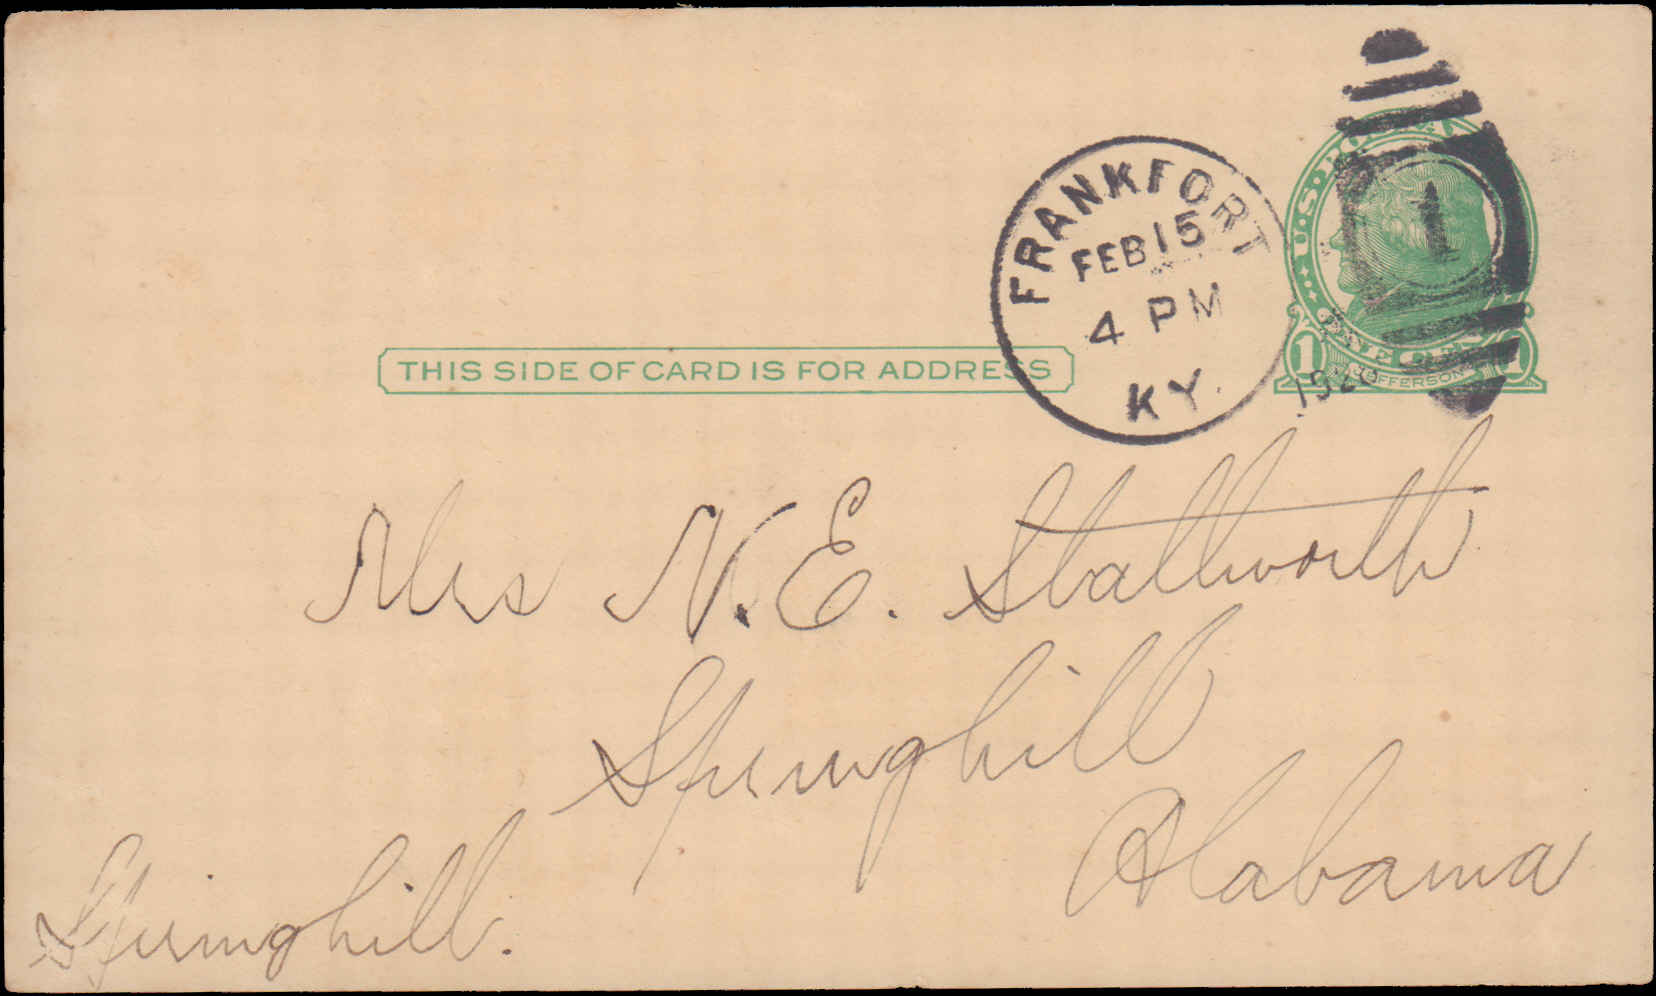 FRANKFORT
FEB 15
4 PM
KY.
1920
1
U.S. POSTAGE
ONE CENT
1 JEFFERSON 1
THIS SIDE OF CARD IS FOR ADDRESS
Mrs N. E. Stallworth
Springhill
Alabama
Springhill.